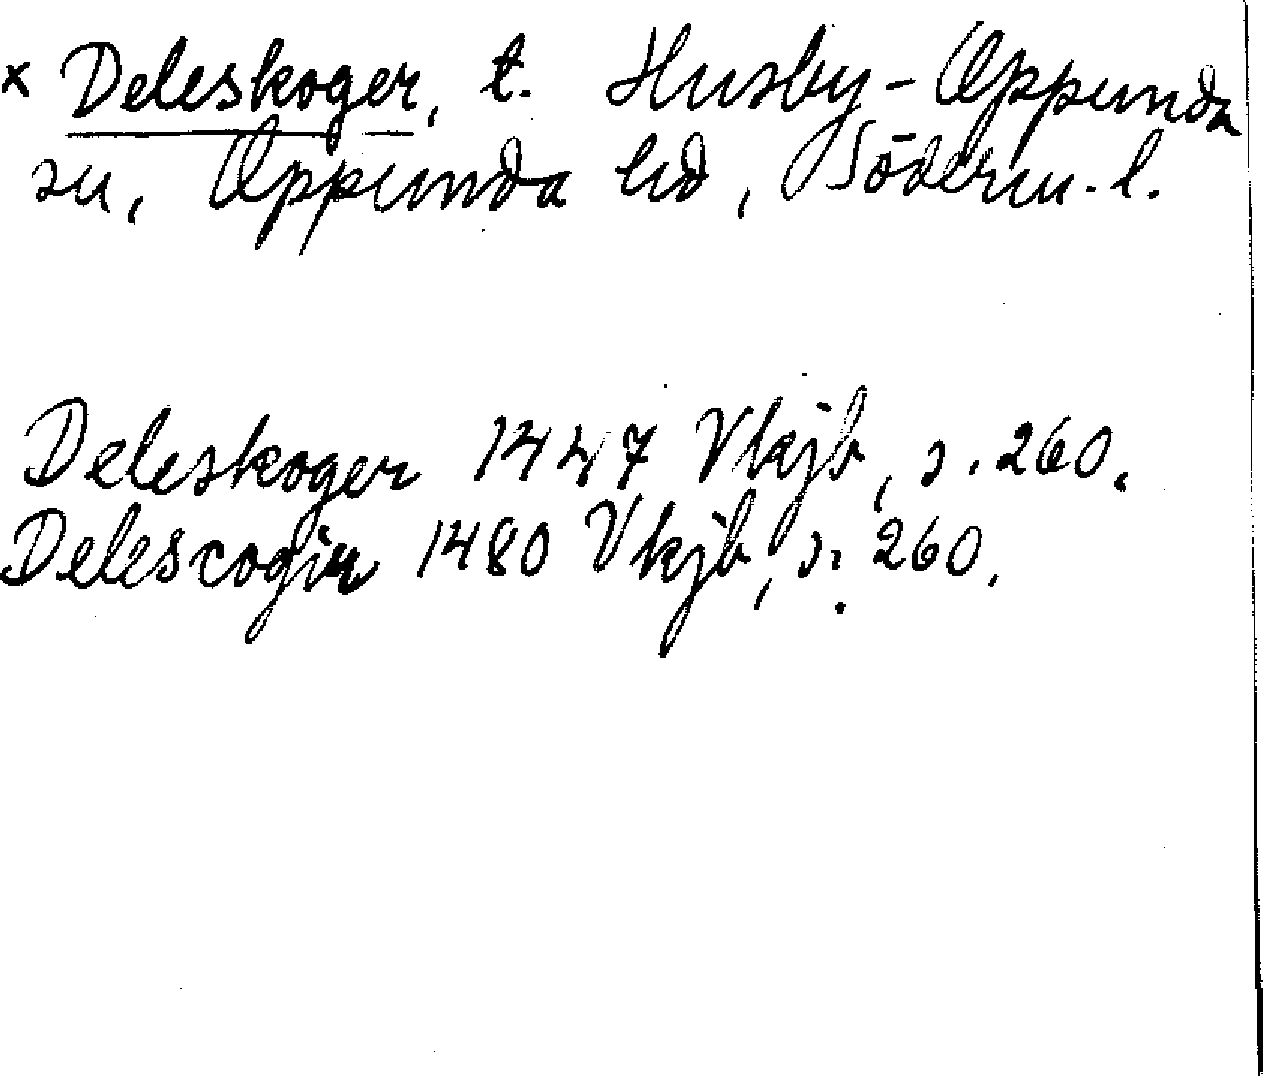 x Deleskoger, t. Husby-Oppunda
sn, Oppunda hd, Söderm. l.
Deleskoger 1447 Vkjb, s. 260.
Delescogir 1480 Vkjb, s. 260.